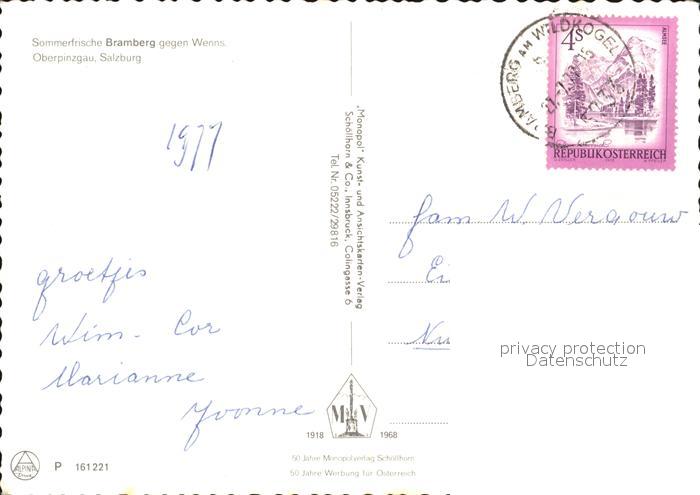 Sommerfrische Bramberg gegen Wenns,
Oberpinzgau, Salzburg
1977
groetjes
Wim - Cor
Marianne
Yvonne
ALPINA
P 161 221
"Monopol" Kunst- und Ansichtskarten-Verlag
Schöllhorn & Co., Innsbruck, Colingasse 6
Tel. Nr. 05222/29816
M V
1918 1968
50 Jahre Monopolverlag Schöllhorn
50 Jahre Werbung für Österreich
BRAMBERG AM WILDKOGEL
4S
ALMSEE
REPUBLIK ÖSTERREICH
fam W. Vergouw
privacy protection
Datenschutz